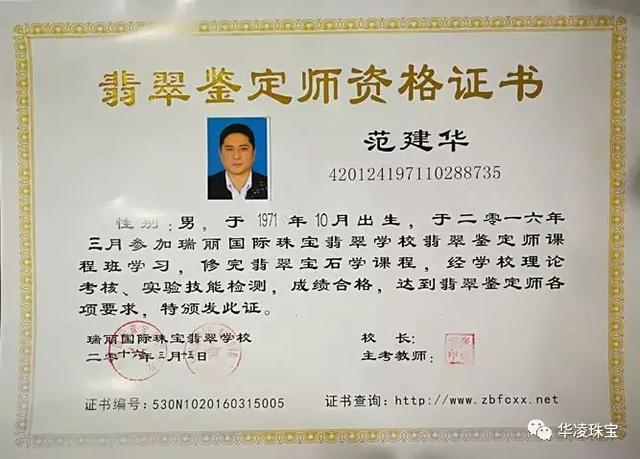 翡翠鉴定师资格证书
范建华
420124197110288735
性别：男，于 1971 年 10 月出生，于二零一六年
三月参加瑞丽国际珠宝翡翠学校翡翠鉴定师课
程班学习，修完翡翠宝石学课程，经学校理论
考核、实验技能检测，成绩合格，达到翡翠鉴定师各
项要求，特颁发此证。
瑞丽国际珠宝翡翠学校 校 长：
二零十六年三月十五日 主考教师：
证书编号：530N1020160315005 证书查询：http://www.zbfcxx.net
华凌珠宝